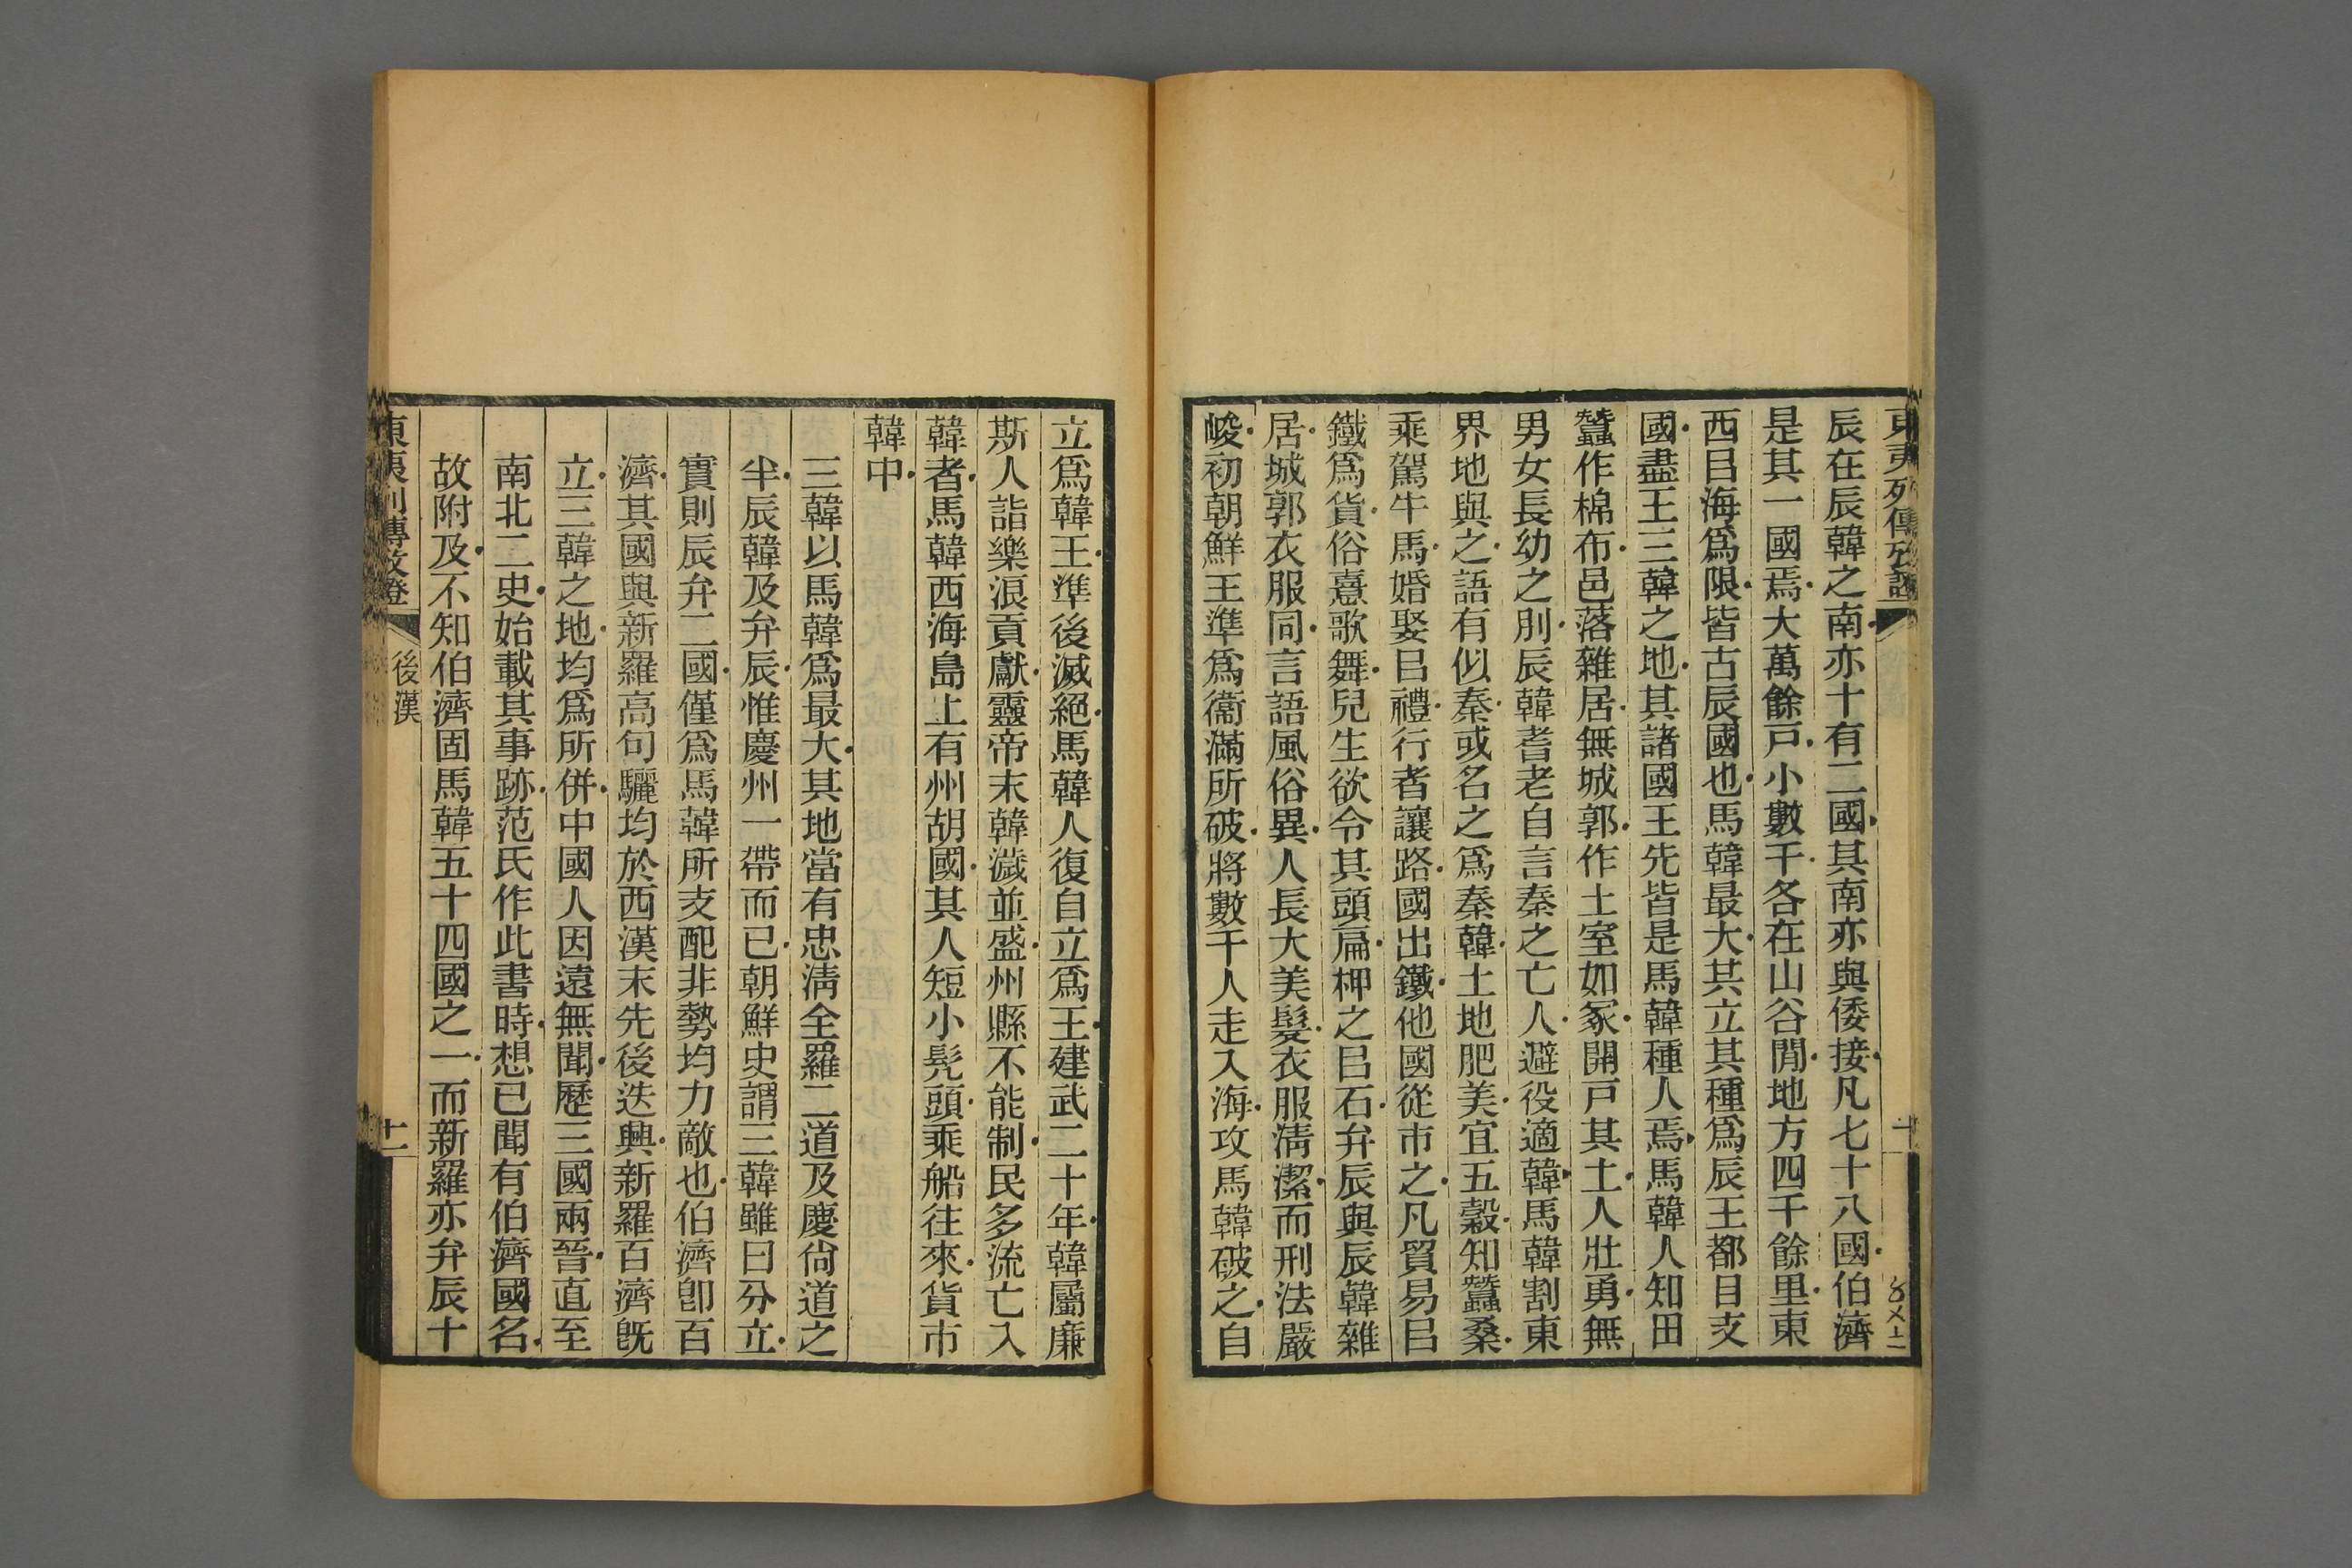 辰在辰韓之南亦十有二國其南亦與倭接凡七十八國伯濟
是其一國焉大萬餘戸小數千各在山谷閒地方四千餘里東
西㠯海爲限皆古辰國也馬韓最大共立其種爲辰王都目支
國盡王三韓之地其諸國王先皆是馬韓種人焉馬韓人知田
蠶作棉布邑落雜居無城郭作土室如冢開戸其土人壯勇無
男女長幼之別辰韓耆老自言秦之亡人避役適韓馬韓割東
界地與之語有似秦或名之爲秦韓土地肥美宜五穀知蠶桑
乘駕牛馬婚娶㠯禮行者讓路國出鐵他國從市之凡貿易㠯
鐵爲貨俗憙歌舞兒生欲令其頭扁柙之㠯石弁辰與辰韓雜
居城郭衣服同言語風俗異人長大美髮衣服淸潔而刑法嚴
峻初朝鮮王準爲衞滿所破將數千人走入海攻馬韓破之自
立爲韓王準後滅絕馬韓人復自立爲王建武二十年韓屬廉
斯人詣樂浪貢獻靈帝末韓濊並盛州縣不能制民多流亡入
韓者馬韓西海島上有州胡國其人短小髠頭乘船往來貨市
韓中
三韓以馬韓爲最大其地當有忠淸全羅二道及慶尙道之
半辰韓及弁辰惟慶州一帶而已朝鮮史謂三韓雖曰分立
實則辰弁二國僅爲馬韓所支配非勢均力敵也伯濟卽百
濟其國與新羅高句驪均於西漢末先後迭興新羅百濟旣
立三韓之地均爲所併中國人因遠無聞歷三國兩晉直至
南北二史始載其事跡范氏作此書時想已聞有伯濟國名
故附及不知伯濟固馬韓五十四國之一而新羅亦弁辰十
東夷列傳攷證
後漢
十一